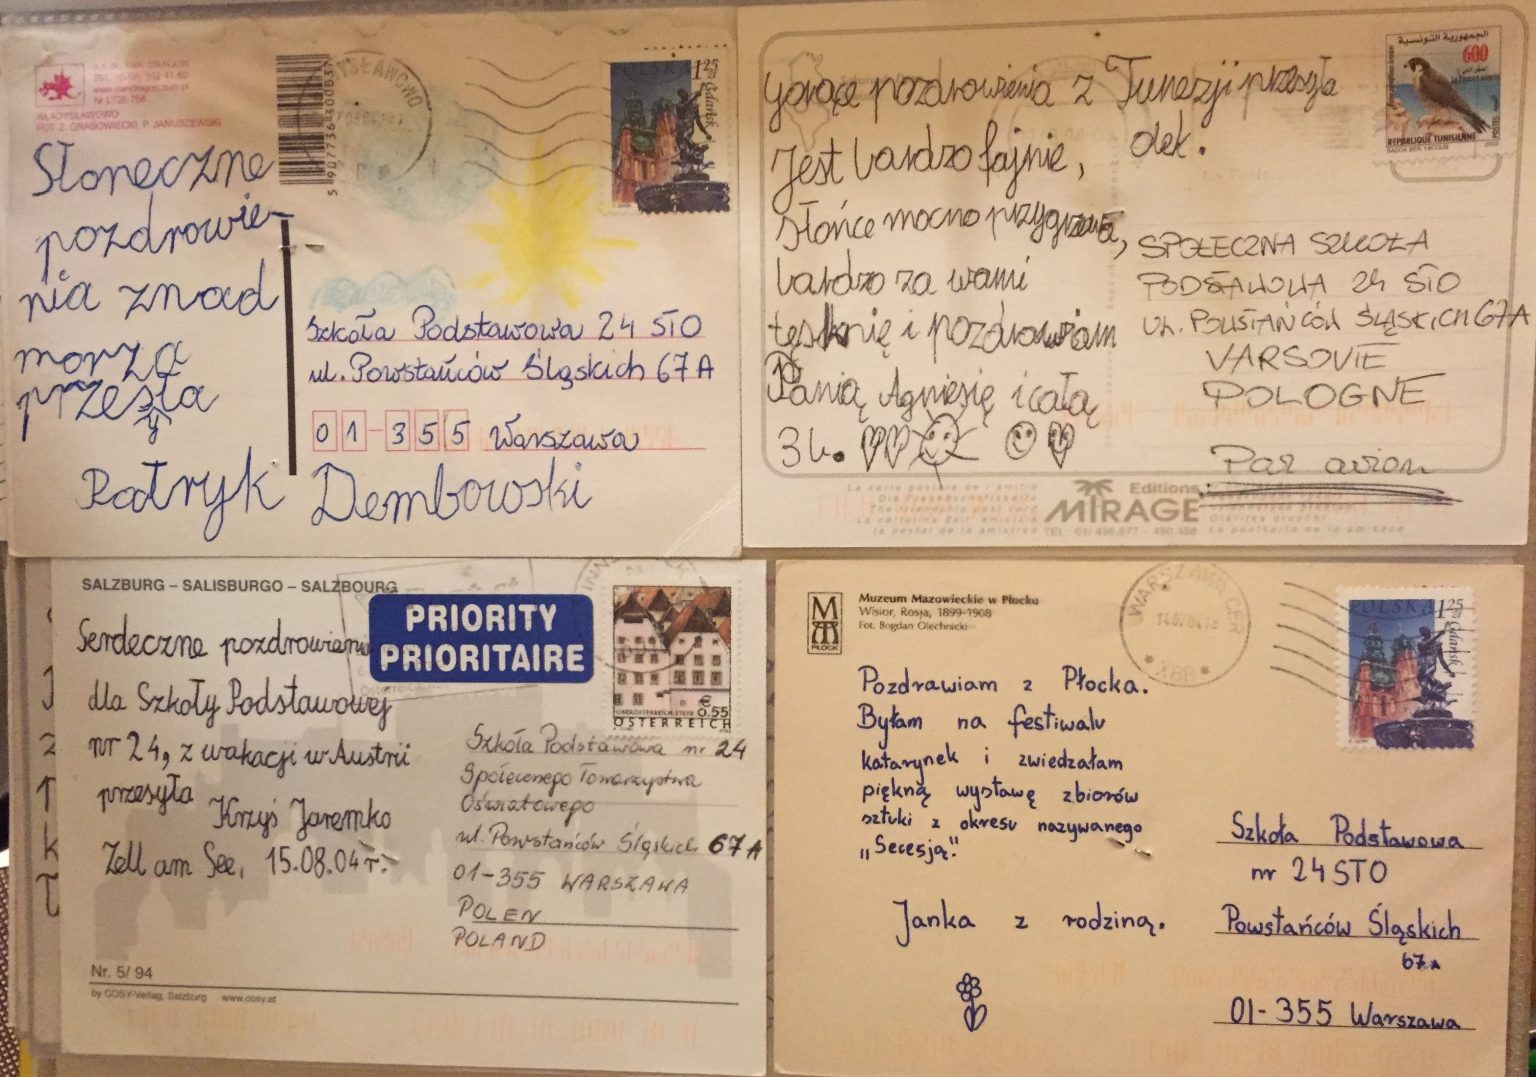 A.K.W. PAN DRAGON
www.pandragon.com.pl
WŁADYSŁAWOWO
FOT. Z. GRABOWIECKI, P. JANUSZEWSKI
POLSKA 1 25 zł
Gdańsk
Słoneczne
pozdrowie-
nia znad
morza
przesyła
Patryk Dembowski
Szkoła Podstawowa 24 STO
ul. Powstańców Śląskich 67A
01-355 Warszawa
Gorące pozdrowienia z Tunezji przesyła
Olek.
Jest bardzo fajnie,
słońce mocno przygrzewa,
bardzo za wami
tęsknię i pozdrawiam
Panią Agniesię i całą
3b.
الجمهورية التونسية
600
REPUBLIQUE TUNISIENNE
SPOŁECZNA SZKOŁA
PODSTAWOWA 24 STO
UL. POWSTAŃCÓW ŚLĄSKICH 67A
VARSOVIE
POLOGNE
Par avion
Editions
MIRAGE
SALZBURG – SALISBURGO – SALZBOURG
PRIORITY
PRIORITAIRE
Serdeczne pozdrowienia
dla Szkoły Podstawowej
nr 24, z wakacji w Austrii
przesyła
Krzyś Jaremko
Zell am See, 15.08.04 r.
€ 0,55
ÖSTERREICH
Szkoła Podstawowa nr 24
Społecznego Towarzystwa
Oświatowego
ul. Powstańców Śląskich 67A
01-355 WARSZAWA
POLEN
POLAND
Nr. 5/ 94
by COSY-Verlag, Salzburg www.cosy.at
Muzeum Mazowieckie w Płocku
Wisior, Rosja, 1899-1908
Fot. Bogdan Olechnicki
PŁOCK
WARSZAWA CER
POLSKA 1 25 zł
Gdańsk
Pozdrawiam z Płocka.
Byłam na festiwalu
katarynek i zwiedzałam
piękną wystawę zbiorów
sztuki z okresu nazywanego
„Secesją".
Janka z rodziną.
Szkoła Podstawowa
nr 24 STO
Powstańców Śląskich
67A
01-355 Warszawa